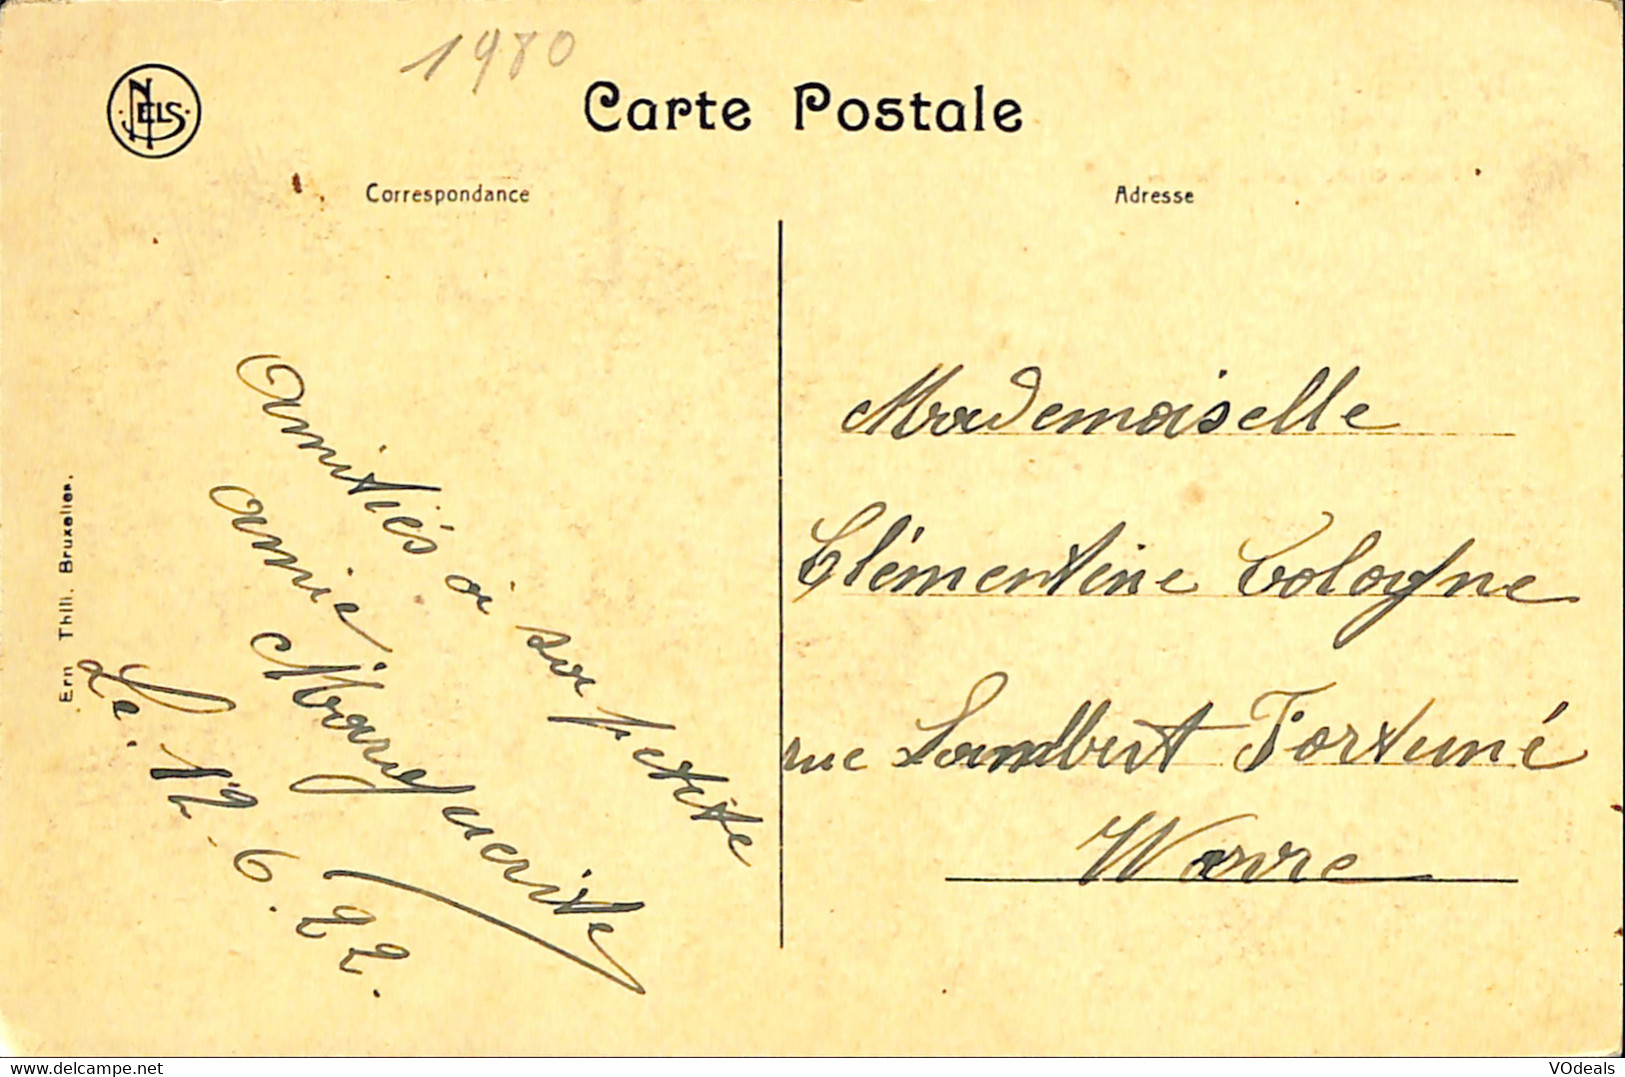 1980
NELS
Carte Postale
Correspondance
Adresse
Amitiés à sa petite
amie
Marguerite
Le. 12.6.22.
Mademoiselle
Clémentine Cologne
rue Lambert Fortuné
Wavre
Ern Thill. Bruxelles.
delcampe.net
VOdeals